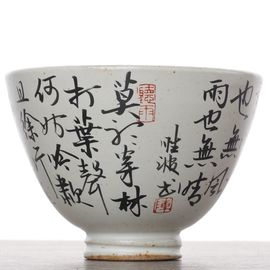 也無風
雨也無晴
聽雨
莫听穿林
打葉聲
何妨吟嘯
且徐行